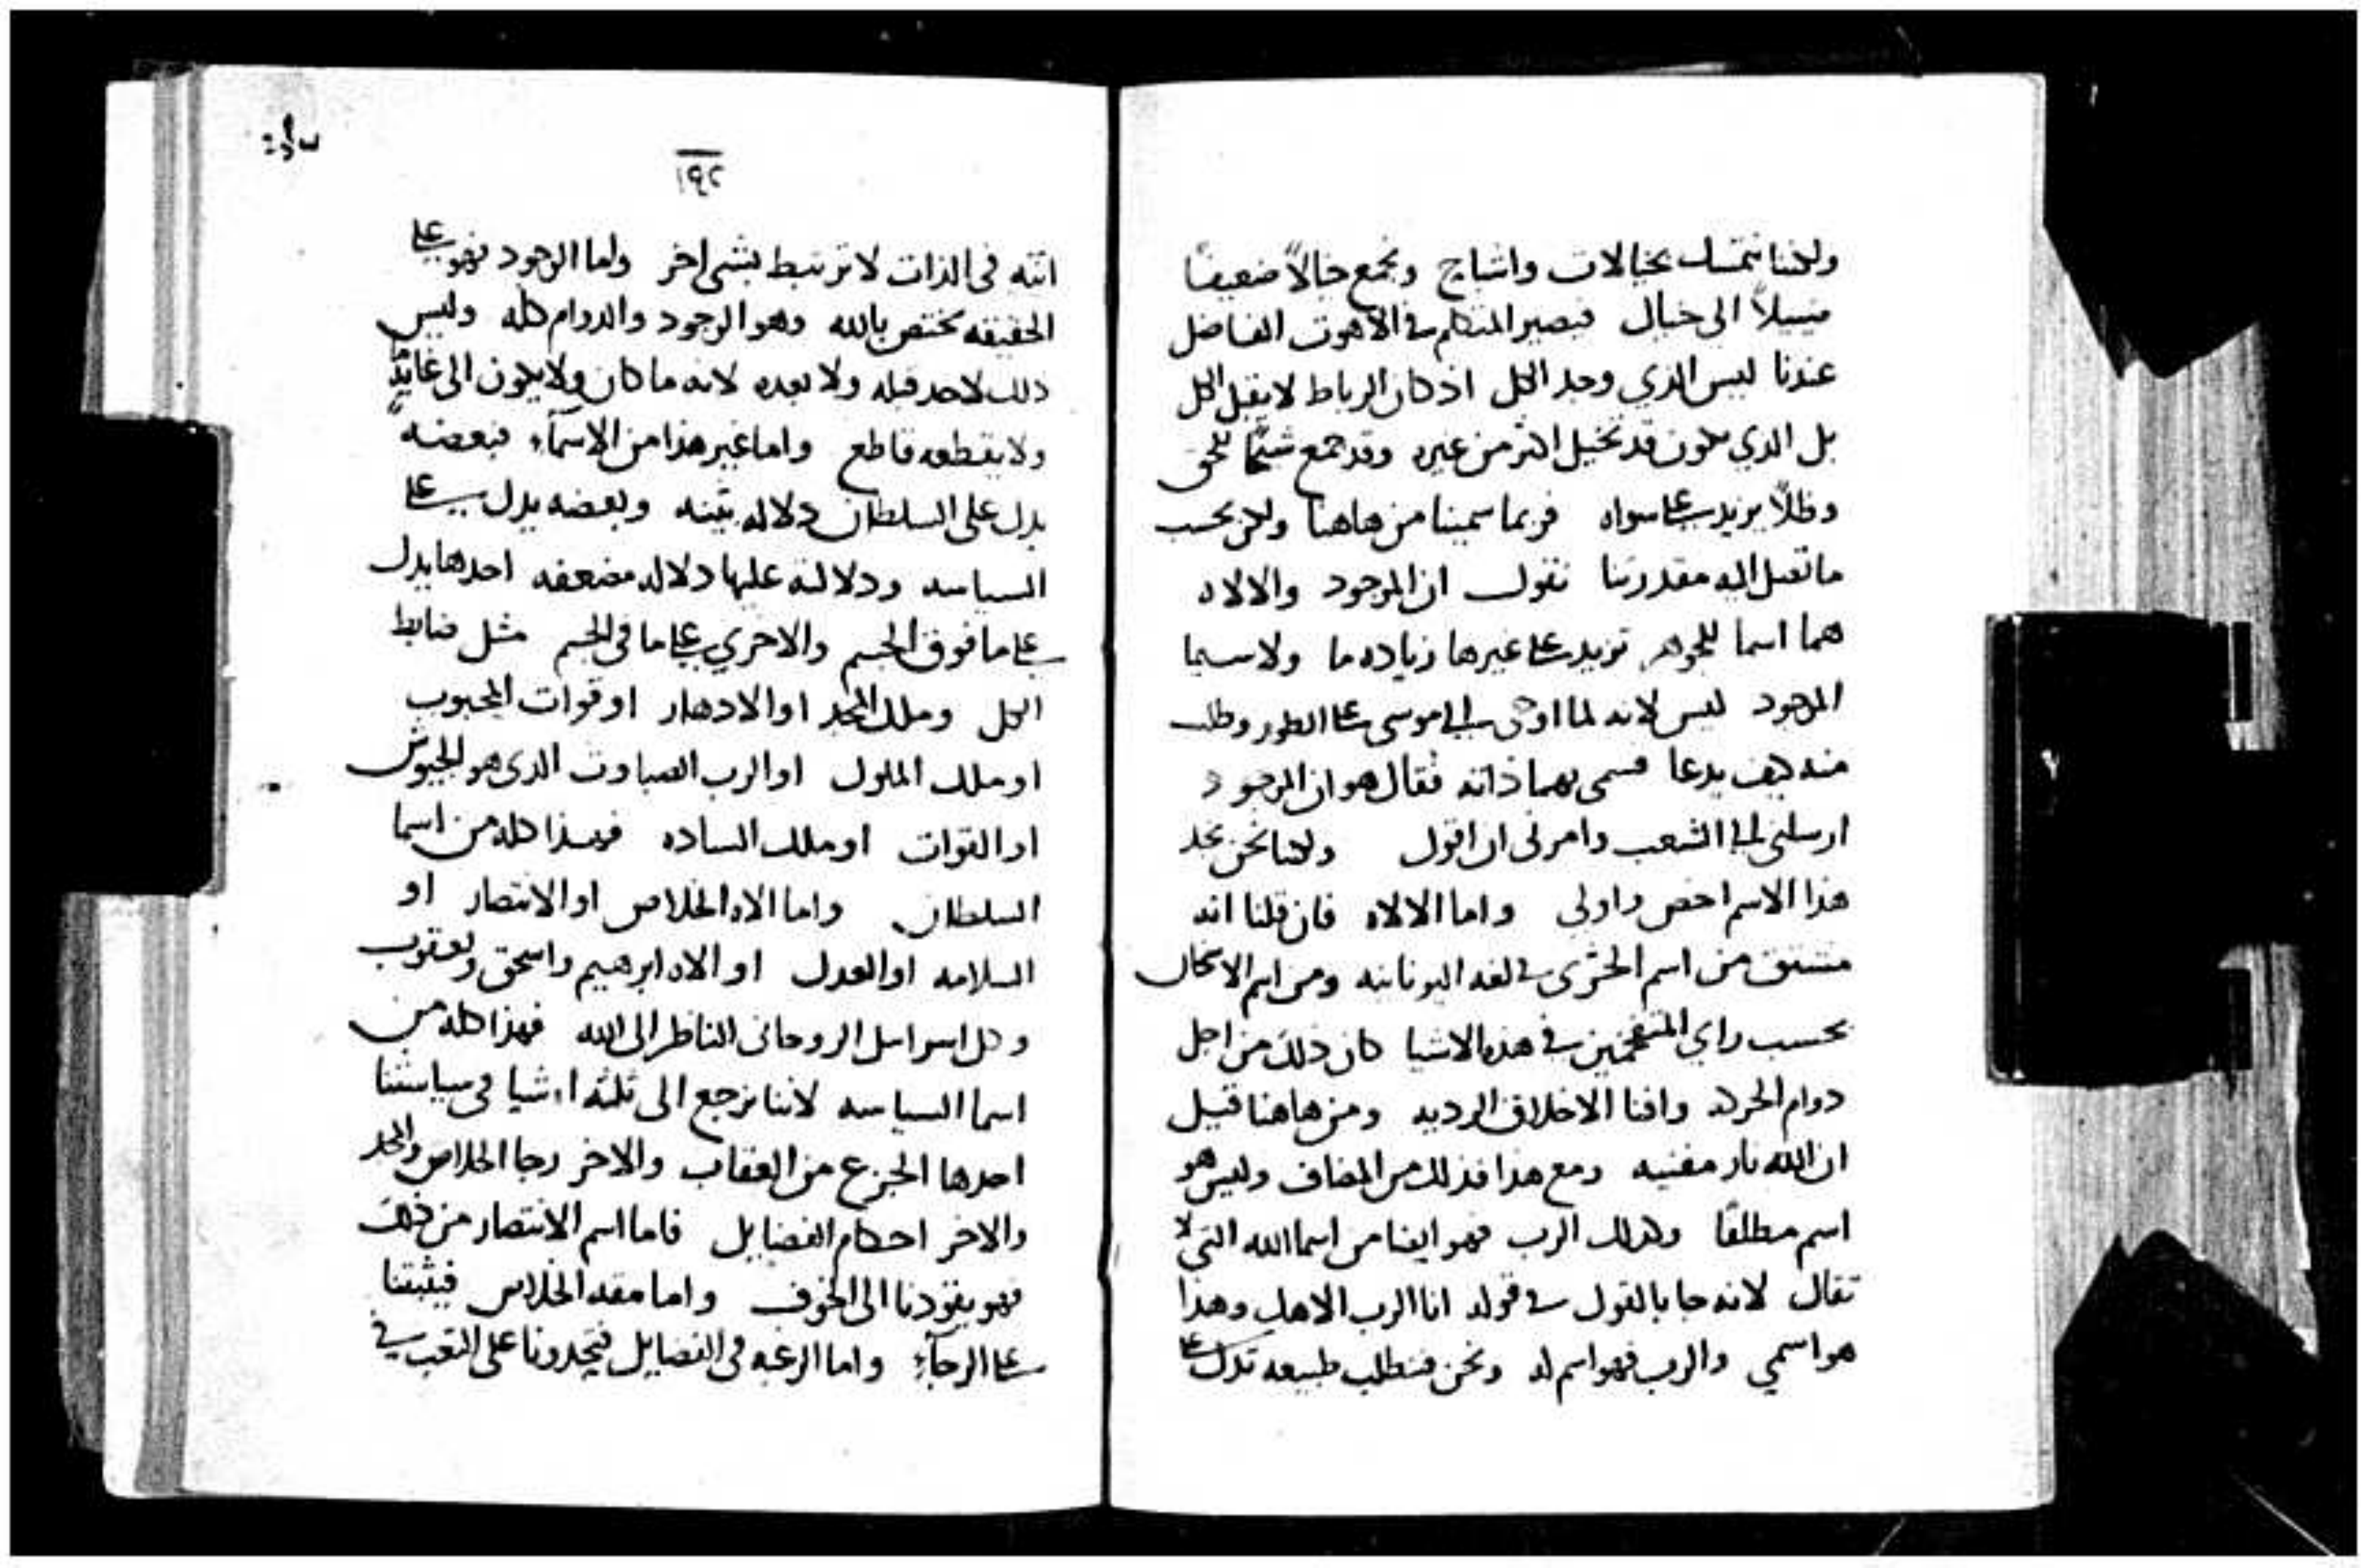 ولكننا نتمسك بخيالات واشباح ونجمع خيالاً ضعيفاً
ضئيلاً الى خيال فيصير المتكلم في الاهوت الفاضل
عندنا ليس الدي وجد الكل اذ كان الرباط لا يقبل الكل
بل الدي يكون قد تخيل اكثر من غيره وقد جمع للحق
وظلاً يزيد على سواه فربما سمينا من هاهنا ولكن بحسب
ما تصل اليه مقدرتنا نقول ان الموجود والالاه
هما اسما للجوهر تزيد على غيرها زياده ما ولاسيما
الموجود ليس لانه لما اوحى الى موسى على الطور وطلب
منه كيف يدعا فسمى بهما ذاته فقال هو ان الموجود
ارسلنى الى الشعب وامرنى ان اقول ولكننا نحن نجد
هذا الاسم اخص واولى واما الالاه فان قلنا انه
مشتق من اسم الجرى في لغه اليونانيه ومن اسم الاحتراق
بحسب راي في هذه الاشيا كان ذلك من اجل
دوام الحركه وافنا الاخلاق الرديه ومن هاهنا قيل
ان الله نار مفنيه ومع هذا فذلك من المضاف وليس هو
اسم مطلقاً وكذلك الرب فهو ايضا من اسما الله التي لا
تقال لانه جا بالقول في قوله انا الرب الاهك وهذا
هو اسمي والرب فهو اسم له ونحن فنطلب طبيعه تدل على
١٩٢
انته فى الذات لا ترتبط بشى اخر واما الوجود فهو على
الحقيقه يختص بالله وهو الوجود والدوام كله وليس
ذلك لاحد قبله ولا بعده لانه ما كان ولا يكون الى غايةٍ ما
ولا يقطعه قاطع واما غير هذا من الاسمآء فبعضه
يدل على السلطان دلاله بينه وبعضه يدل على
السياسه ودلالته عليها دلاله مضعفه احدها يدل
على ما فوق الجسم والاخري على ما فى الجسم مثل ضابط
الكل وملك المجد او الادهار او قوات المحبوب
او ملك الملوك او الرب الصباوت الدى هو الجيوش
او القوات او ملك الساده فهذا كله من اسما
السلطان واما الاه الخلاص او الانتصار او
السلامه او العدل او الاه ابرهيم واسحق ويعقوب
وكل اسراييل الروحانى الناظر الى الله فهذا كله من
اسما السياسه لاننا نرجع الى ثلثه اشيا فى سياستنا
احدها الجزع من العقاب والاخر رجا الخلاص والمجد
والاخر احكام الفضايل فاما اسم الانتصار من ذلك
فهو يقودنا الى الخوف واما الخلاص فيثبتنا
على الرجآء واما الرغبه فى الفضايل فتحدونا على التعب في